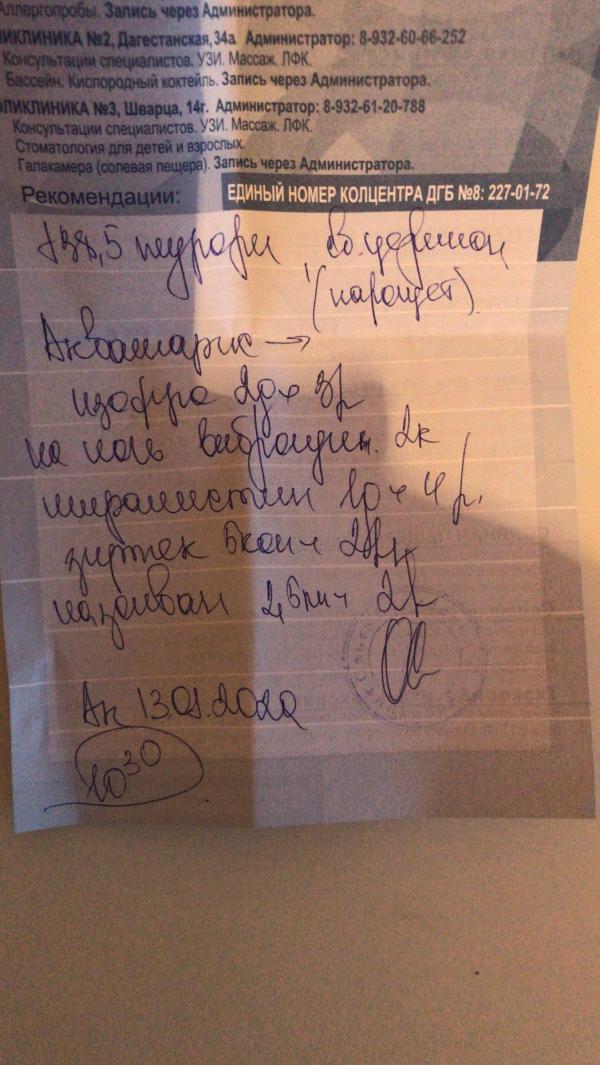 Аллергопробы. Запись через Администратора.
ЛИКЛИНИКА №2, Дагестанская, 34а Администратор: 8-932-60-66-252
Консультации специалистов. УЗИ. Массаж. ЛФК.
Бассейн. Кислородный коктейль. Запись через Администратора.
ОЛИКЛИНИКА №3, Шварца, 14г. Администратор: 8-932-61-20-788
Консультации специалистов. УЗИ. Массаж. ЛФК.
Стоматология для детей и взрослых.
Галакамера (солевая пещера). Запись через Администратора.
Рекомендации: ЕДИНЫЙ НОМЕР КОЛЦЕНТРА ДГБ №8: 227-01-72
38,5 нурофен
Аквамарис →
изофра 2д х 3р
на ночь виброцил 2к
мирамистин 1д х 4р.
зиртек 5кап х 2р
називин 2к х 2р
Ак 13.01.2020
10 30